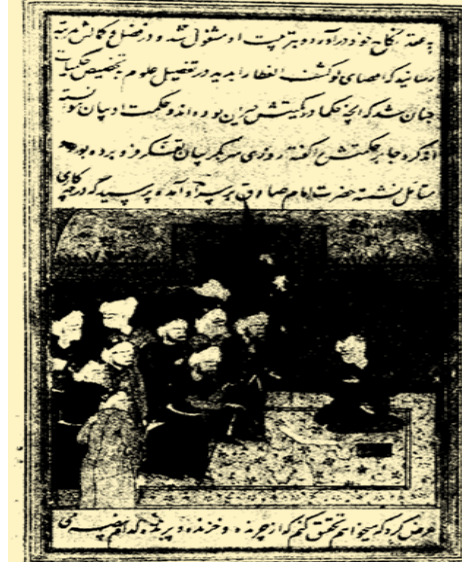 نکاح خود درآورده و بتربیت او مشغول شد و در فضل و کمالش بمرتبه
رسانید که امصای لو کشف الغطا را بدید در تفصیل علوم بتخصیص حکمیات
چنان شد که آنچه حکما در کیتش حیران بوده اند و حکمت او بیان
اند کرد جابر حکمتش گفته روزی سر بگریبان تفکر فرو برده بود
متامل نشسته حضرت امام صادق برسر او آمده پرسید که در چه کاری
عرض کرد که میخواهم تحقیق کنم که از چرنده و خزنده و پرنده کدام